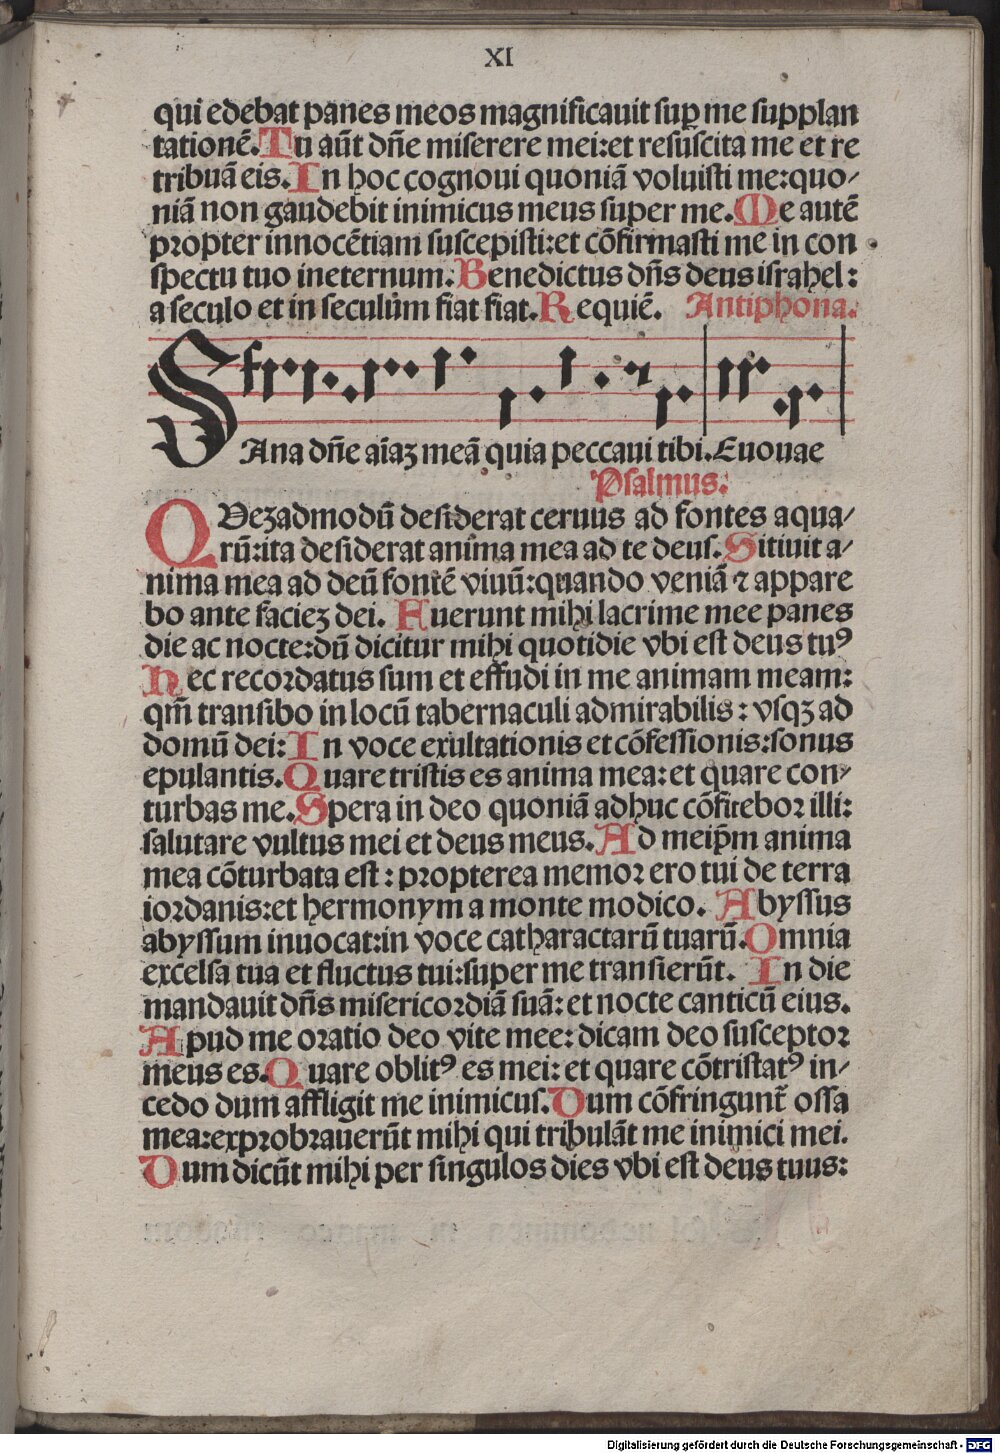 XI
qui edebat panes meos magnificauit sup̱ me supplan
tationē. Tu aūt dn̄e miserere mei: et resuscita me et re
tribuā eis. In hoc cognoui quoniā voluisti me: quo⸗
niā non gaudebit inimicus meus super me. Me autē
propter innocētiam suscepisti: et cōfirmasti me in con
spectu tuo ineternum. Benedictus dn̄s deus israhel:
a seculo et in seculum fiat fiat. Requiē. Antiphona.
SAna dn̄e aīaꝫ meā quia peccaui tibi. Euouae
Psalmus.
QVeꝫadmodū desiderat ceruus ad fontes aqua⸗
rū: ita desiderat anima mea ad te deus. Sitiuit a⸗
nima mea ad deū fontē viuū: quando veniā ⁊ appare
bo ante facieꝫ dei. Fuerunt mihi lacrime mee panes
die ac nocte: dū dicitur mihi quotidie vbi est deus tuꝰ
Hec recordatus sum et effudi in me animam meam:
qm̄ transibo in locū tabernaculi admirabilis: vsqꝫ ad
domū dei: In voce exultationis et cōfessionis: sonus
epulantis. Quare tristis es anima mea: et quare con⸗
turbas me. Spera in deo quoniā adhuc cōfitebor illi:
salutare vultus mei et deus meus. Ad meip̄m anima
mea cōturbata est: propterea memor ero tui de terra
iordanis: et hermonym a monte modico. Abyssus
abyssum inuocat: in voce catharactarū tuarū. Omnia
excelsa tua et fluctus tui: super me transierūt. In die
mandauit dn̄s misericordiā suā: et nocte canticū eius.
Apud me oratio deo vite mee: dicam deo susceptor
meus es. Quare oblitꝰ es mei: et quare cōtristatꝰ in⸗
cedo dum affligit me inimicus. Dum cōfringunt̄ ossa
mea: exprobrauerūt mihi qui tribulāt me inimici mei.
Dum dicūt mihi per singulos dies vbi est deus tuus:
Digitalisierung gefördert durch die Deutsche Forschungsgemeinschaft - DFG